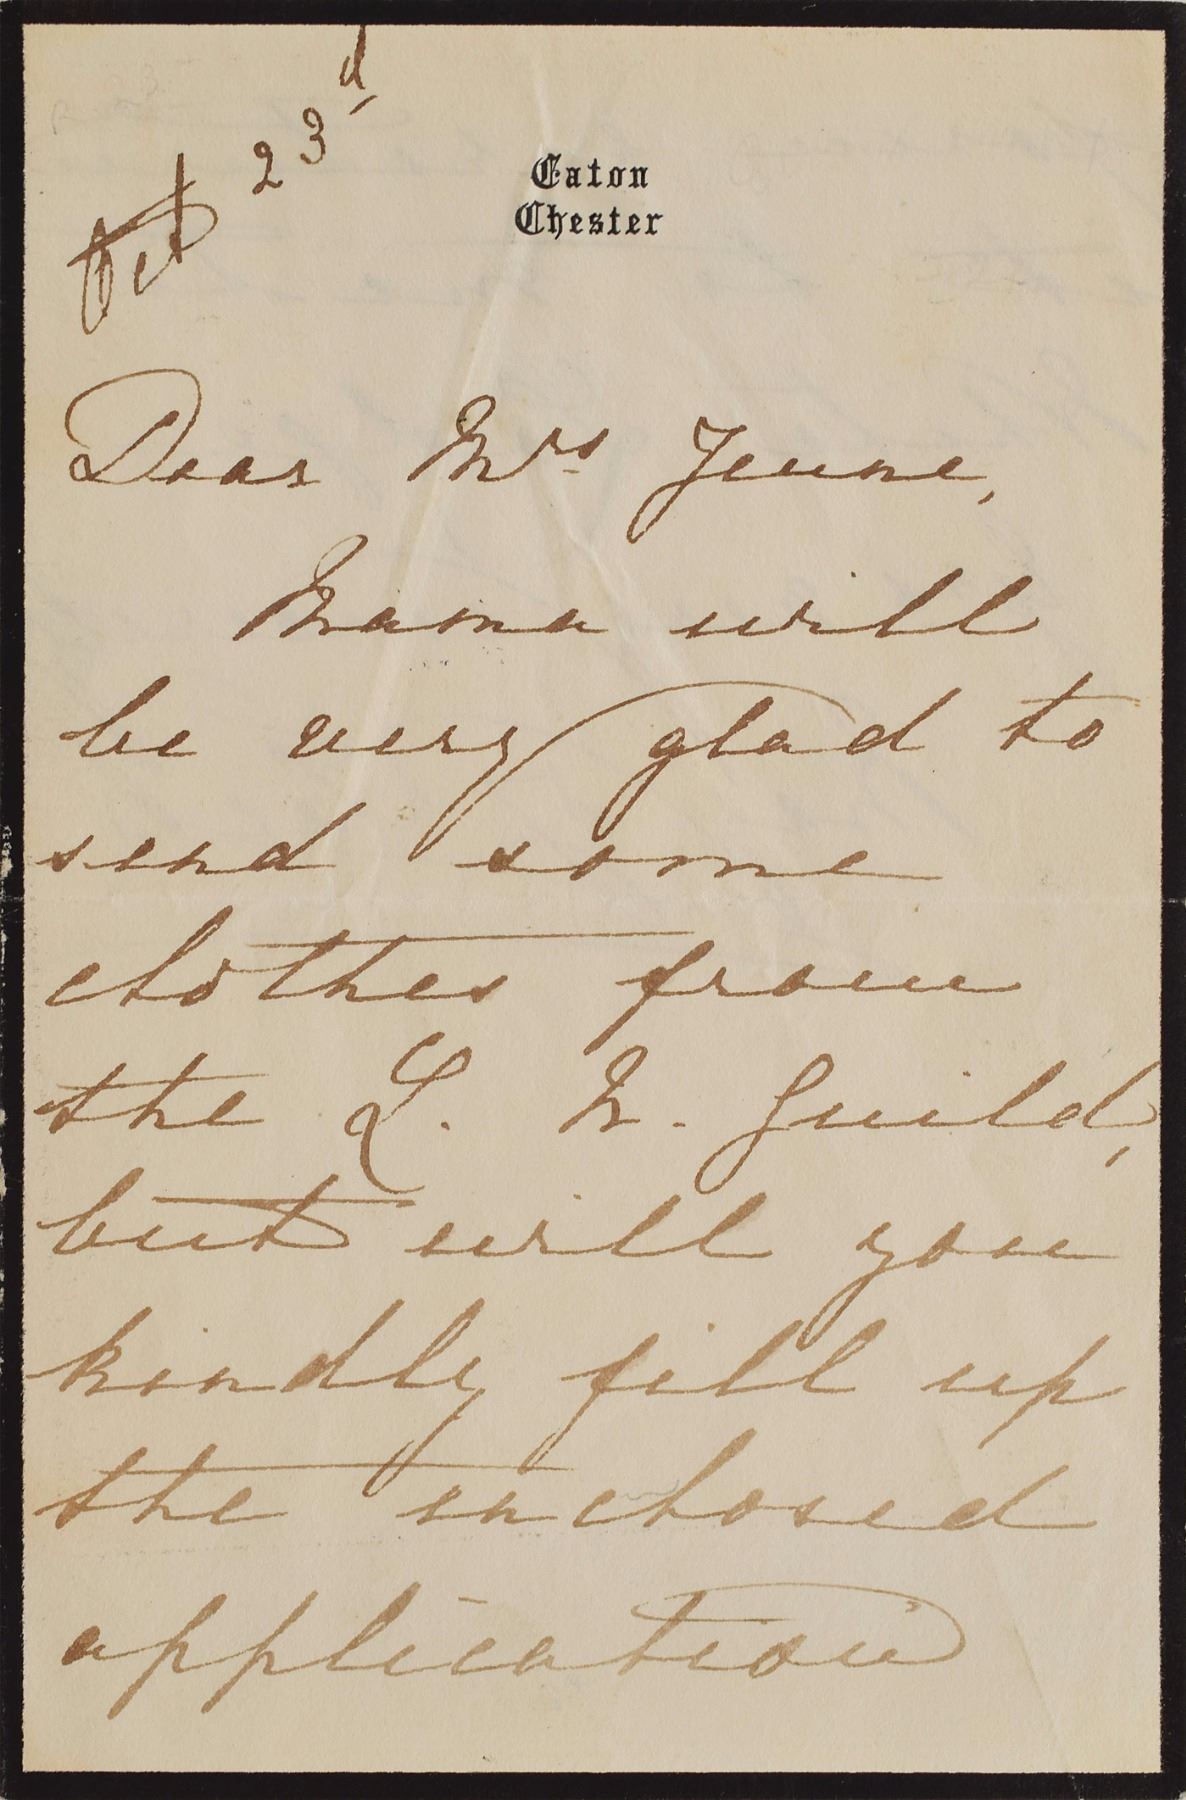 Oct 23d
Eaton
Chester
Dear Mrs Jeune,
Mama will
be very glad to
send some
clothes from
the L. N. Guild,
but will you
kindly fill up
the enclosed
application